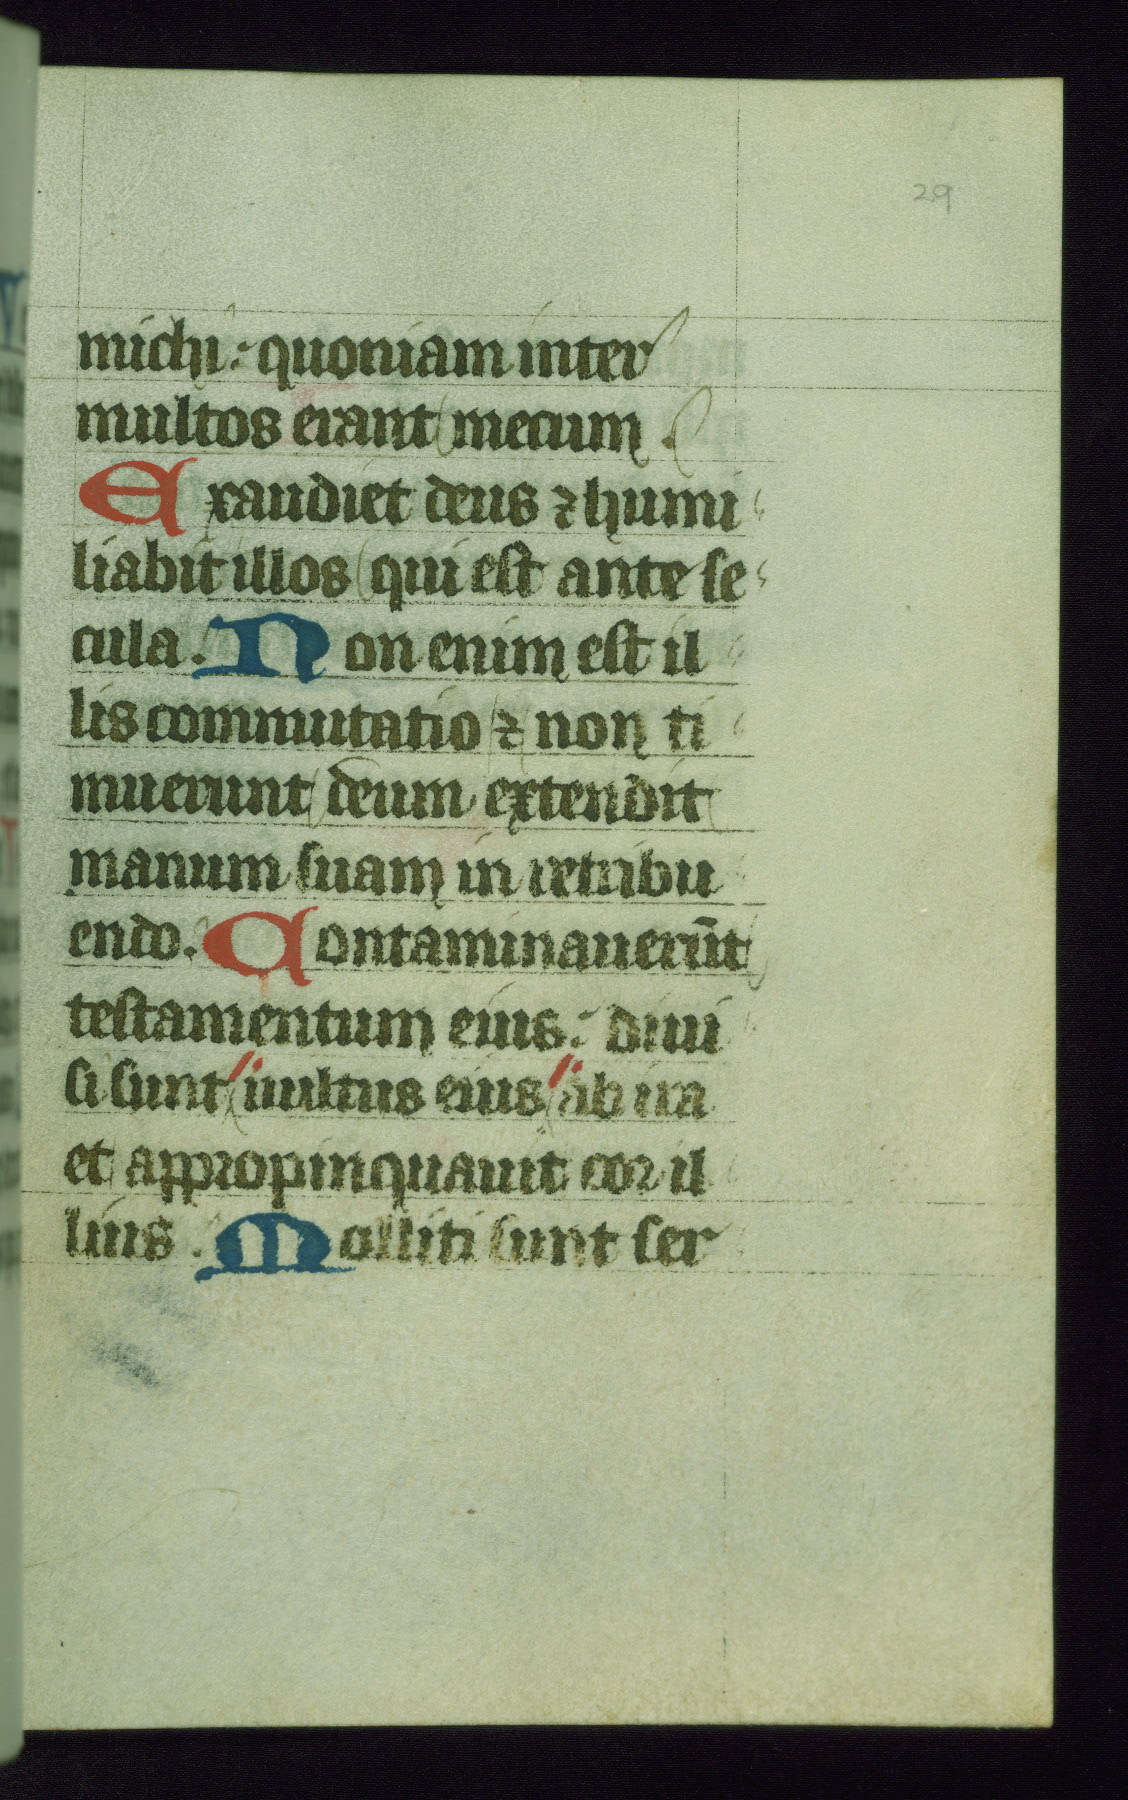 29
michi: quoniam inter
multos erant mecum.
Exaudiet deus ⁊ humi
liabit illos qui est ante se
cula. Non enim est il
lis commutatio ⁊ non ti
muerunt deum extendit
manum suam in retribu
endo. Contaminauerūt
testamentum eius: diui
si sunt uultus eius ab ira
et appropinquauit cor il
lius. Molliti sunt ser